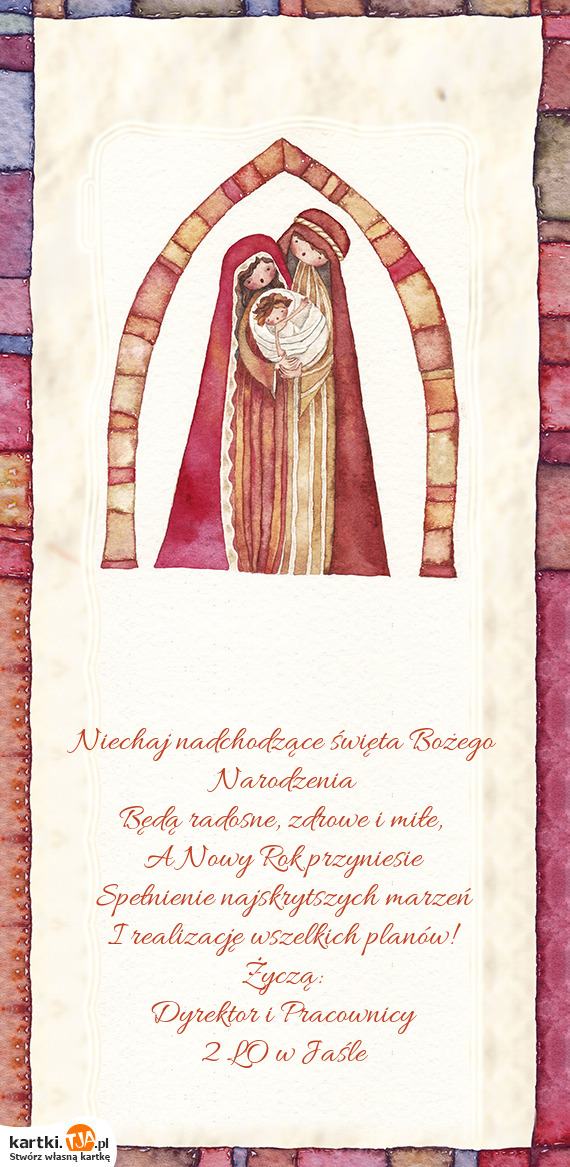 Niechaj nadchodzące święta Bożego
Narodzenia
Będą radosne, zdrowe i miłe,
A Nowy Rok przyniesie
Spełnienie najskrytszych marzeń
I realizację wszelkich planów!
Życzą:
Dyrektor i Pracownicy
2 LO w Jaśle
kartki.TJA.pl
Stwórz własną kartkę